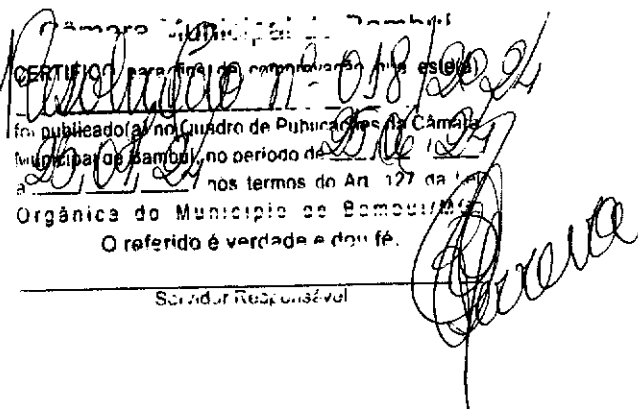 Câmara Municipal de Bambuí
CERTIFICO, para fins de comprovação que este(a)
Resolução nº 018/2024
foi publicado(a) no Quadro de Publicações da Câmara
Municipal de Bambuí, no período de
a nos termos do Art. 127 da Lei
Orgânica do Município de Bambuí/MG
O referido é verdade e dou fé.
Servidor Responsável